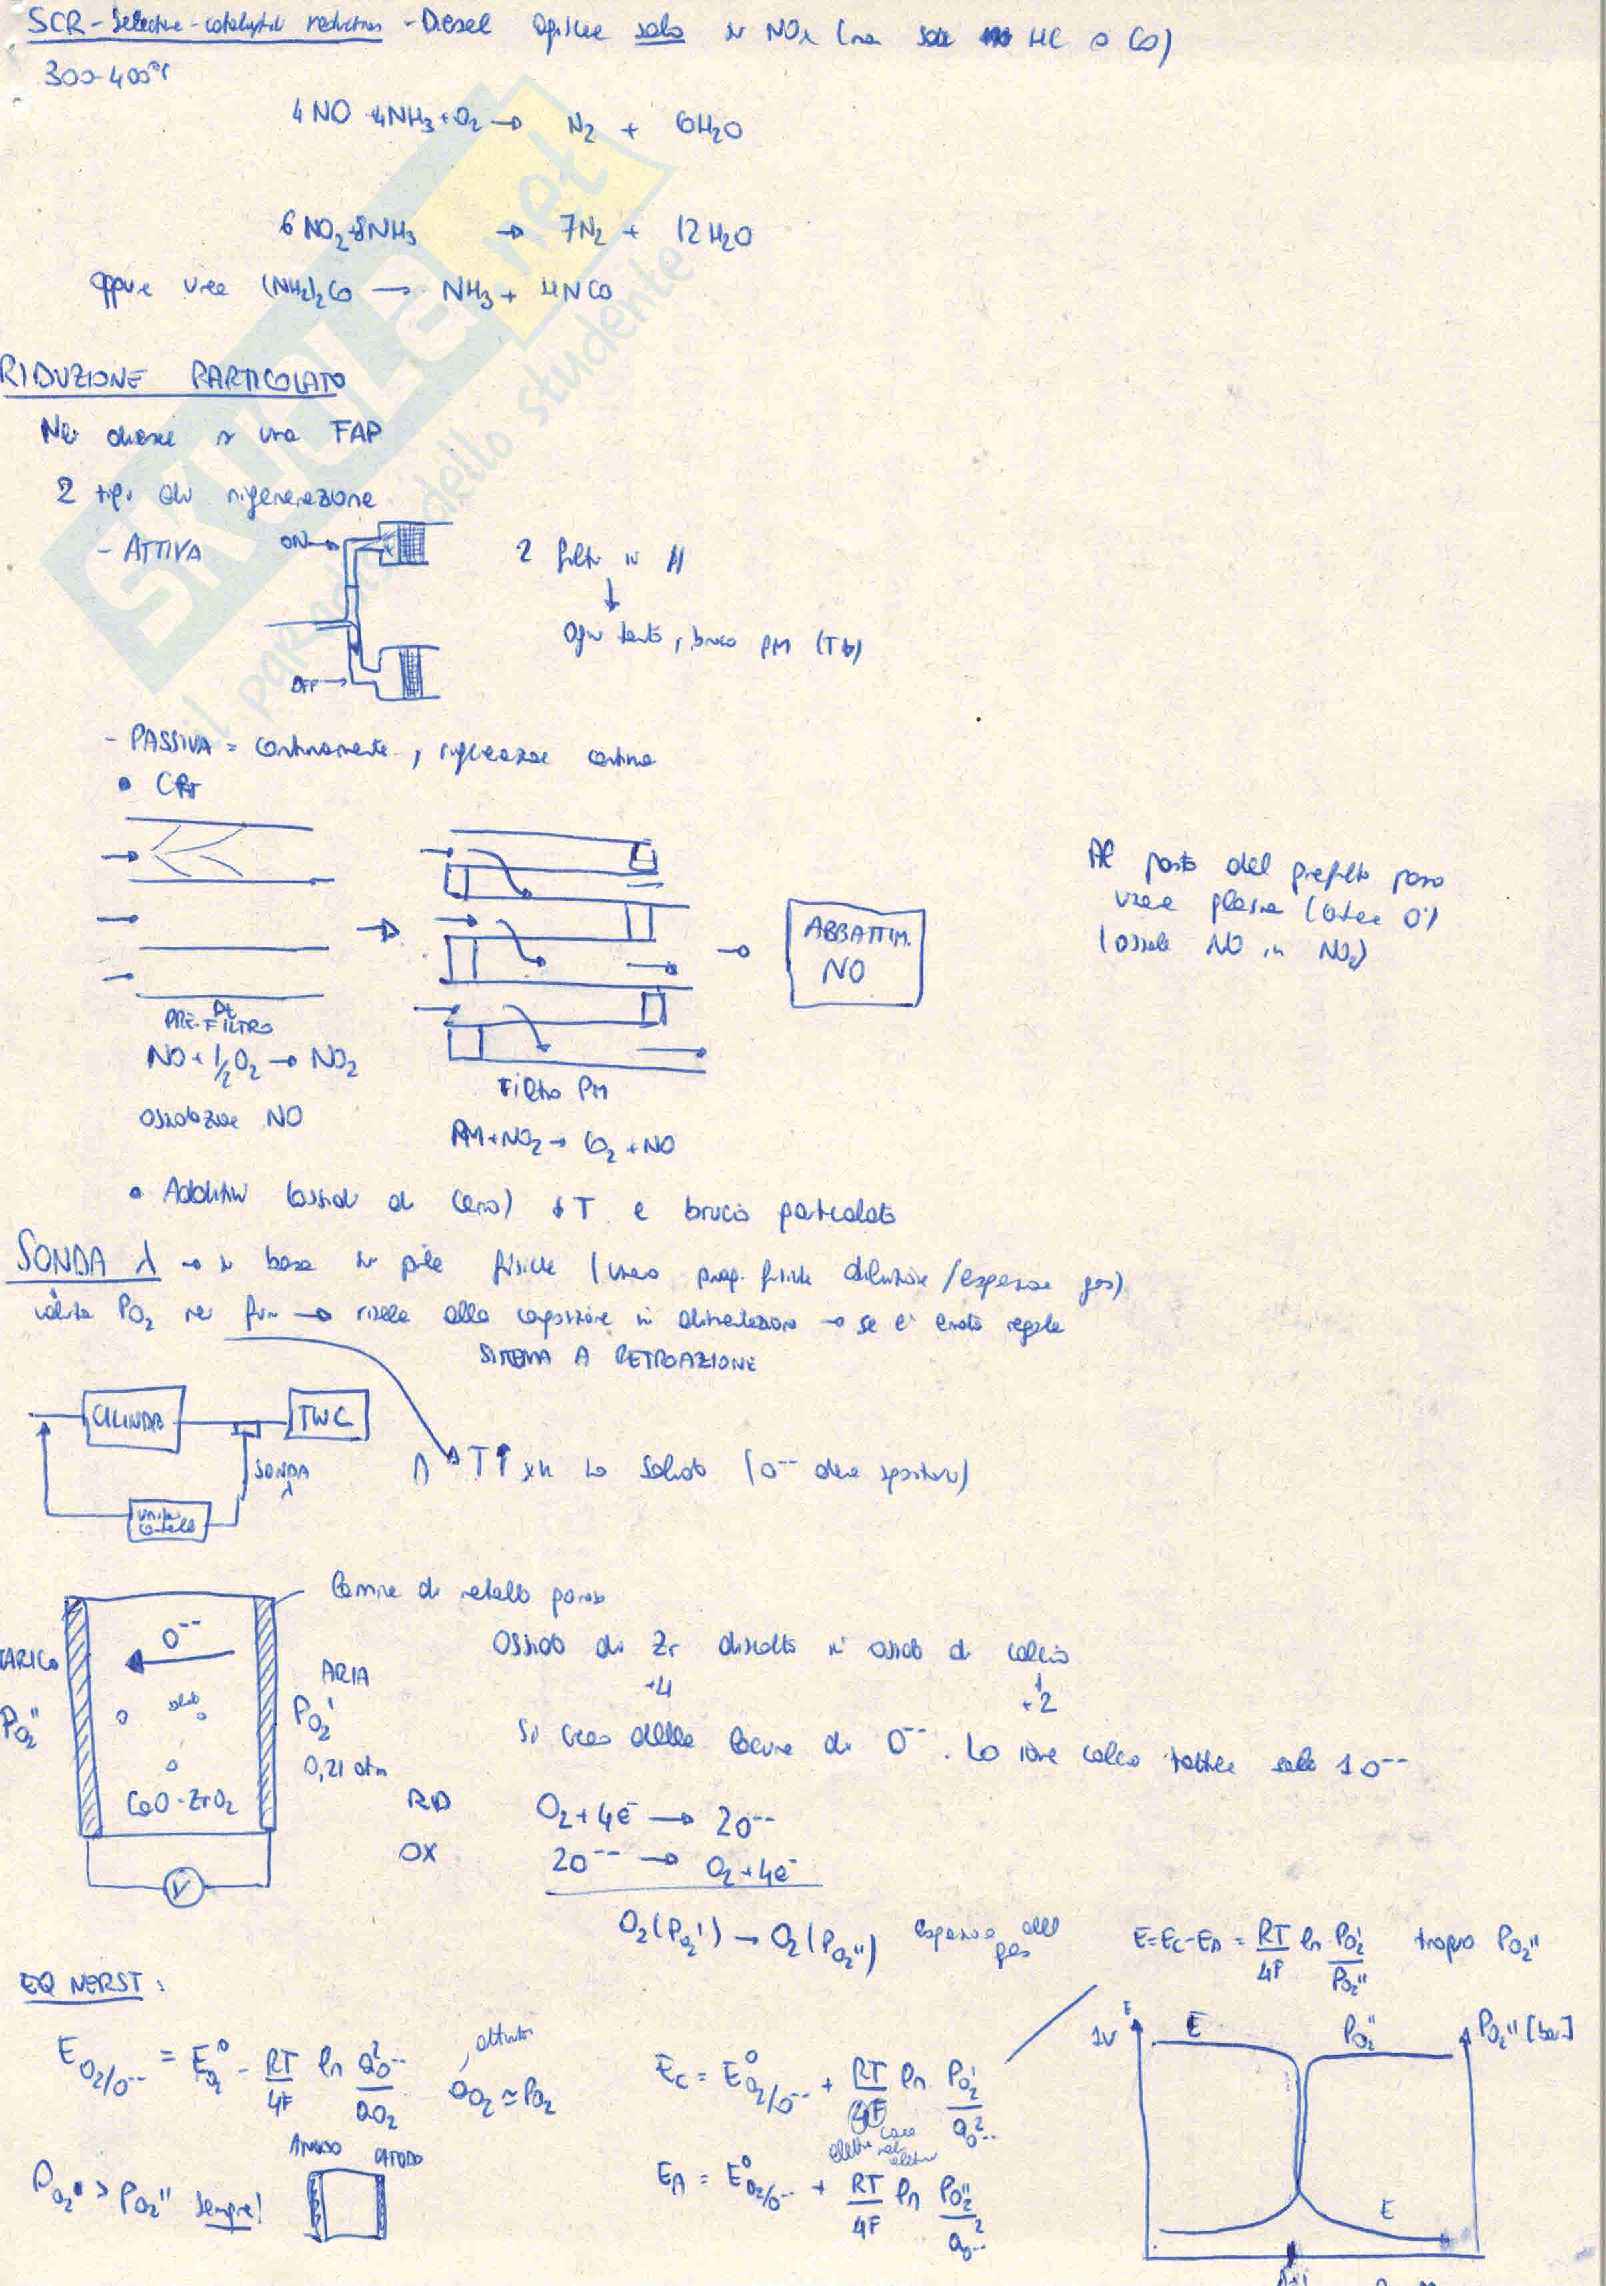 SCR - Selective - catalytic reduction - Diesel agisce solo su NOx (no su HC o CO)
300-400°C
4NO + 4NH3 + O2 → N2 + 6H2O
6NO2 + 8NH3 → 7N2 + 12H2O
oppure urea (NH2)2CO → NH3 + HNCO
RIDUZIONE PARTICOLATO
Nei diesel si usa FAP
2 tipi di rigenerazione
- ATTIVA
ON
2 filtri in //
ogni tanto, brucio PM
OFF
- PASSIVA = continuamente, rigenerazione continua
• CRT
PRE-FILTRO
Pt
NO + 1/2 O2 → NO2
ossidazione NO
Filtro PM
PM + NO2 → CO2 + NO
ABBATTIM.
NO
Al posto del prefiltro posso
usare plasma
(ossida NO in NO2)
• Additivi (ossido di Cerio) ↓T e brucio particolato
SONDA λ → si basa su pile fisiche (usano prop. fisiche diluizione/espansione gas)
valuta PO2 nei fumi → risale alla composizione in alimentazione → se è errata regola
SISTEMA A RETROAZIONE
CILINDRO
TWC
SONDA
λ
unità
controllo
T↑ xk ho solido (O-- deve spostarsi)
Lamine di metallo poroso
O--
SCARICO
PO2''
solido
CaO-ZrO2
ARIA
PO2'
0,21 atm
V
Ossido di Zr disciolto in ossido di calcio
+4
+2
Si creano delle lacune di O--. Lo ione calcio sottrae solo 1 O--
RID
O2 + 4e- → 2O--
OX
2O-- → O2 + 4e-
O2(PO2') → O2(PO2'') espansione del gas
E = EC - EA = RT/4F ln PO2'/PO2'' trovo PO2''
EQ NERST:
EO2/O-- = E°O2 - RT/4F ln a²O--/aO2
attività
aO2 ≃ PO2
EC = E°O2/O-- + RT/4F ln PO2'/a²O--
EA = E°O2/O-- + RT/4F ln PO2''/a²O--
PO2' > PO2'' sempre!
ANODO
CATODO
1V
E
E
PO2''
PO2'' [bar]
E